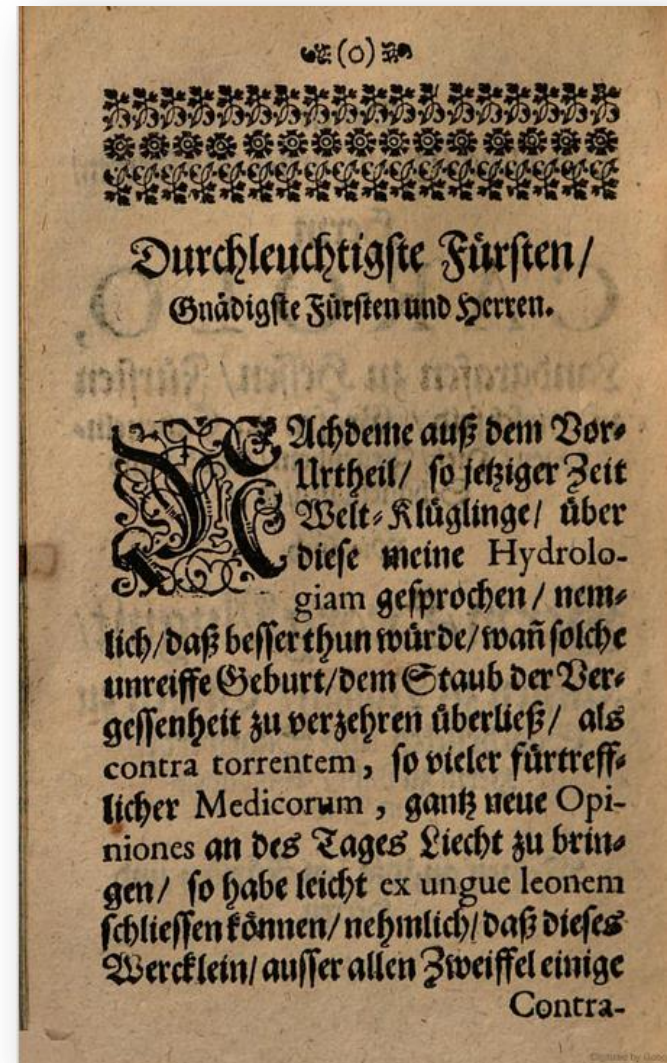 (o)
Durchleuchtigste Fürsten/
Gnädigste Fürsten und Herren.
NAchdeme auß dem Vor-
Urtheil/ so jetziger Zeit
Welt-Klüglinge/ über
diese meine Hydrolo-
giam gesprochen/ nem-
lich/daß besser thun würde/wañ solche
unreiffe Geburt/dem Staub der Ver-
gessenheit zu verzehren überließ/ als
contra torrentem, so vieler fürtreff-
licher Medicorum, gantz neue Opi-
niones an des Tages Liecht zu brin-
gen/ so habe leicht ex ungue leonem
schliessen können/nehmlich/daß dieses
Wercklein/ausser allen Zweiffel einige
Contra-